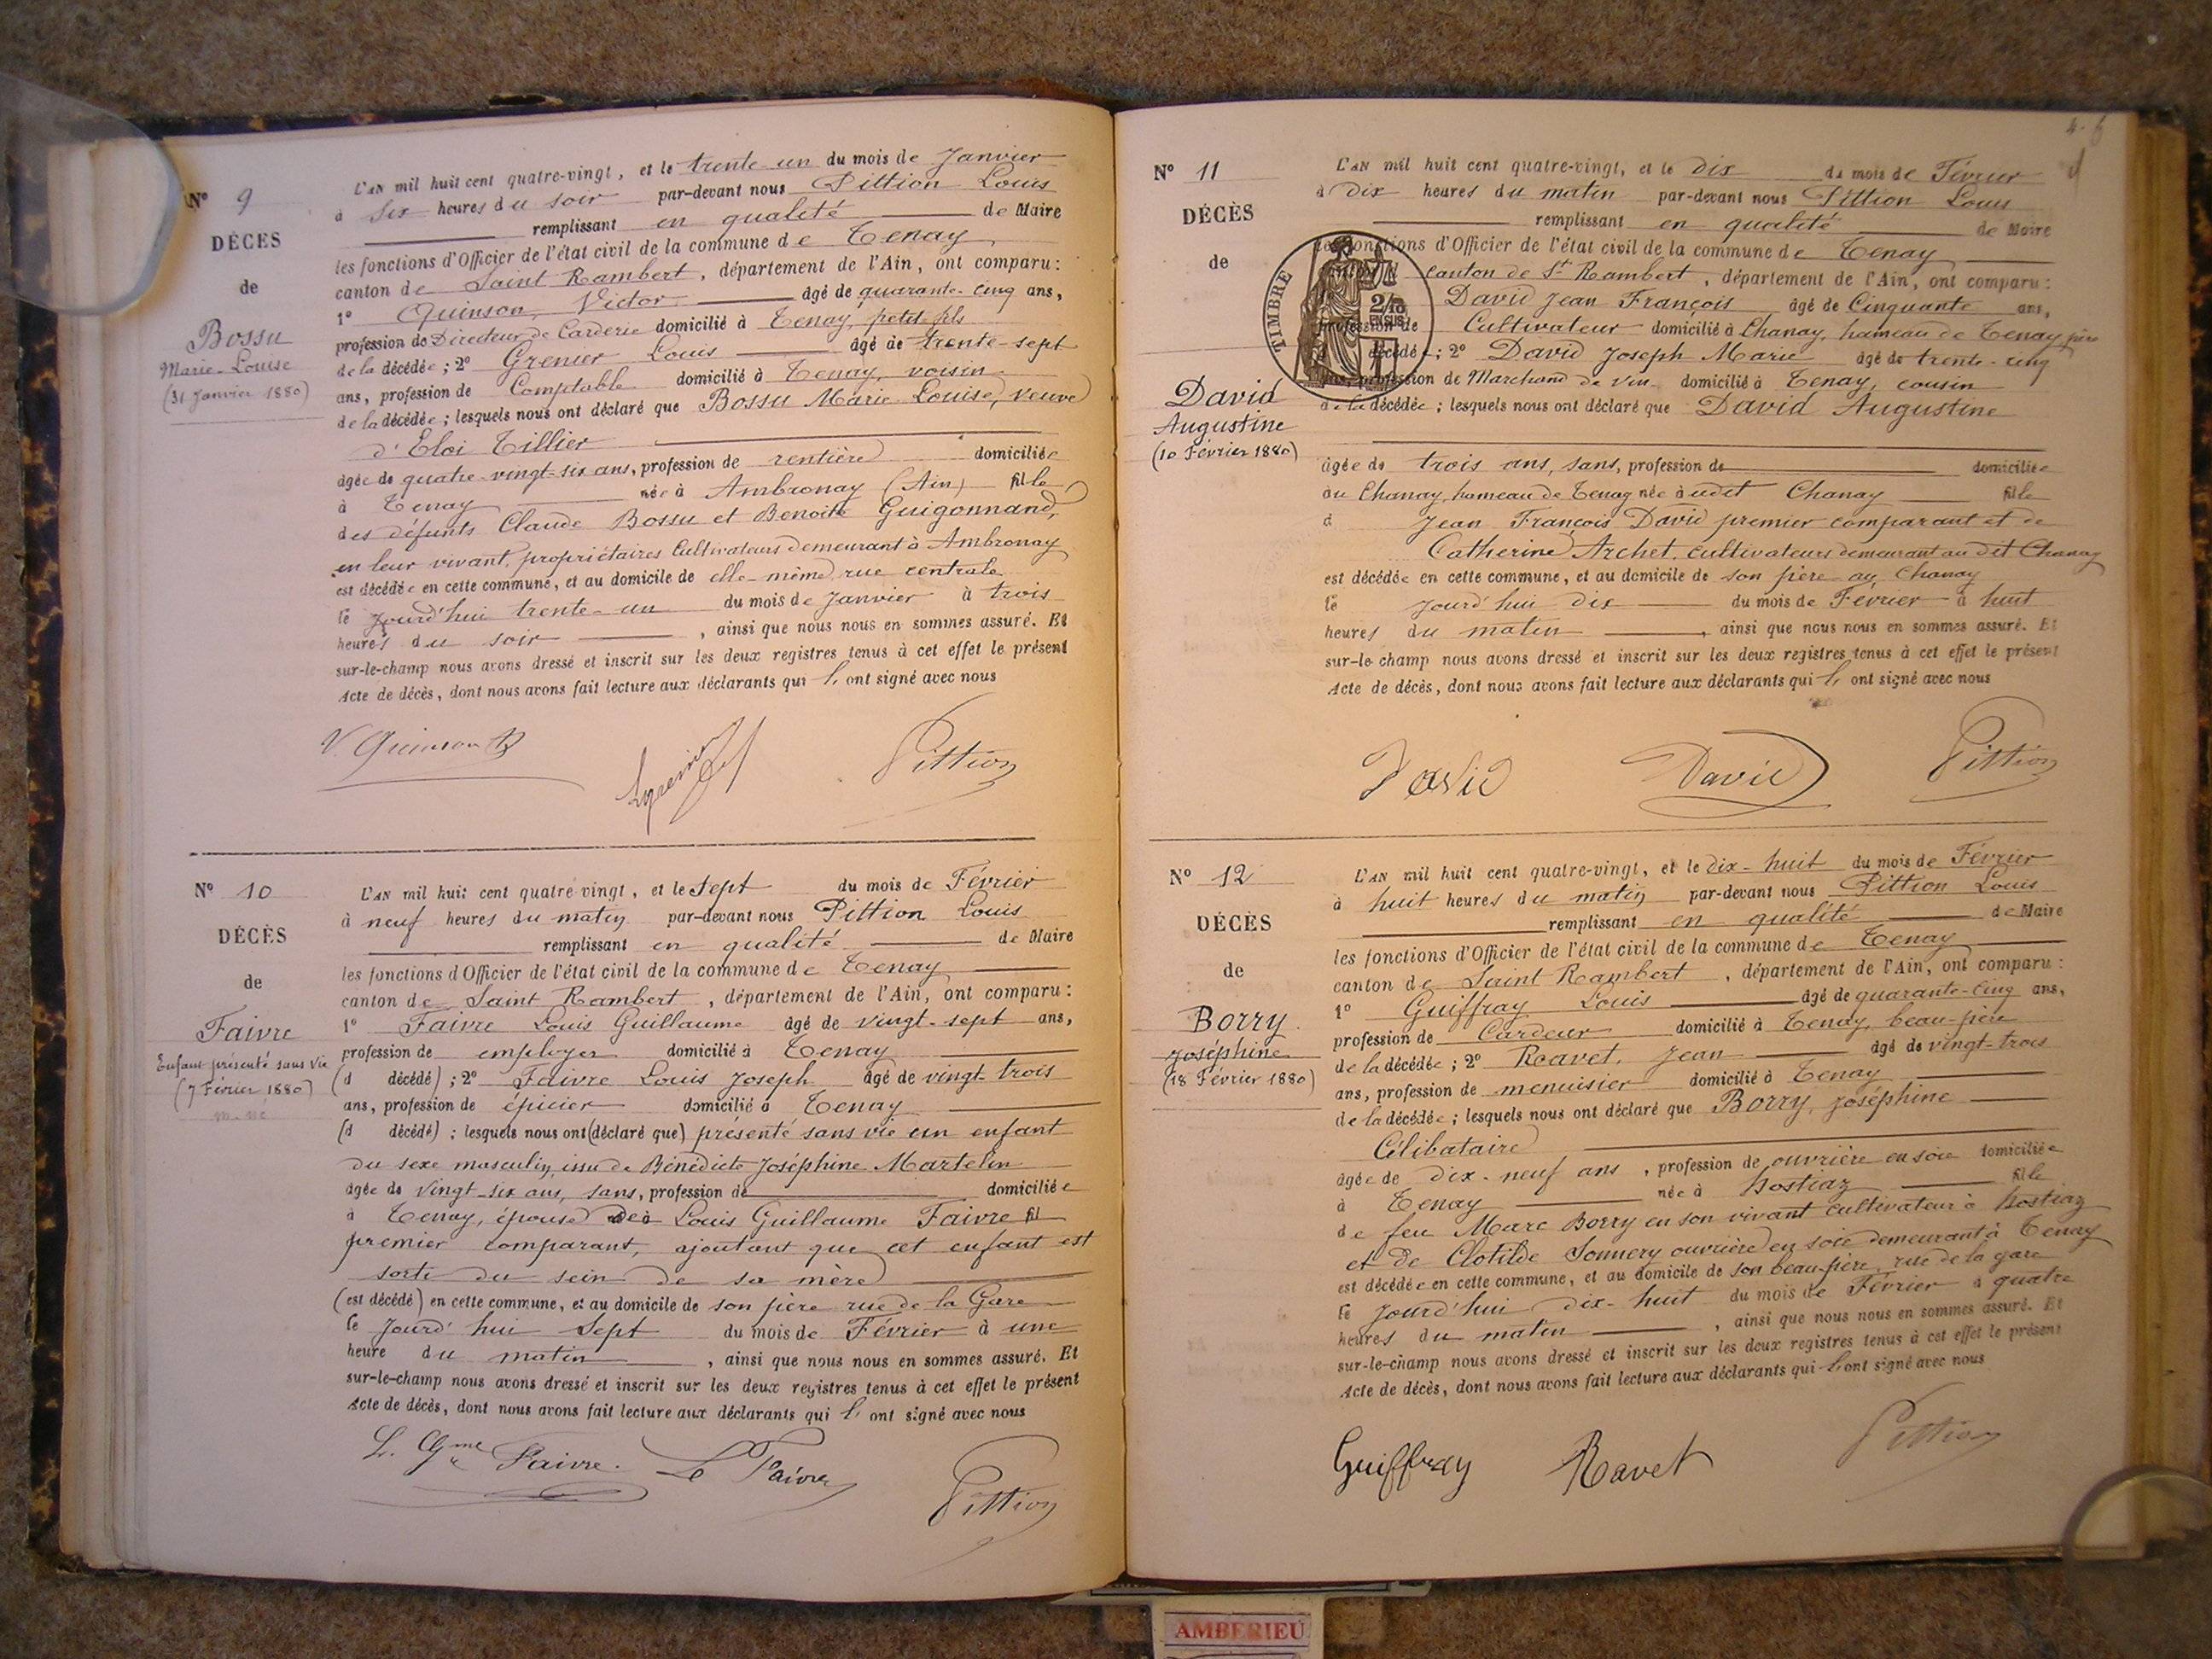 N° 9
DÉCES
de
Bossu
Marie-Louise
(31 Janvier 1880)
L'AN mil huit cent quatre-vingt, et le trente-un du mois de Janvier
à six heures du soir par-devant nous Pittion Louis
remplissant en qualité de Maire
les fonctions d'Officier de l'état civil de la commune de Tenay
canton de Saint Rambert, département de l'Ain, ont comparu :
1° Quinson, Victor âgé de quarante-cinq ans,
profession de Directeur de Carderie domicilié à Tenay, petit fils
de la décédée ; 2° Grenier Louis âgé de trente-sept
ans, profession de Comptable domicilié à Tenay, voisin
de la décédée ; lesquels nous ont déclaré que Bossu Marie Louise, veuve
d'Eloi Tillier
âgée de quatre-vingt-six ans, profession de rentière domiciliée
à Tenay née à Ambronay (Ain) fille
des défunts Claude Bossu et Benoite Guigonnand,
en leur vivant, propriétaires Cultivateurs demeurant à Ambronay
est décédée en cette commune, et au domicile de elle-même, rue centrale
le jourd'hui trente-un du mois de Janvier à trois
heures du soir, ainsi que nous nous en sommes assuré. Et
sur-le-champ nous avons dressé et inscrit sur les deux registres tenus à cet effet le présent
Acte de décès, dont nous avons fait lecture aux déclarants qui l' ont signé avec nous
V. Quinson Grenier Pittion
N° 10
DÉCÈS
de
Faivre
Enfant présenté sans vie
(7 Février 1880)
L'AN mil huit cent quatre-vingt, et le sept du mois de Février
à neuf heures du matin par-devant nous Pittion Louis
remplissant en qualité de Maire
les fonctions d'Officier de l'état civil de la commune de Tenay
canton de Saint Rambert, département de l'Ain, ont comparu :
1° Faivre Louis Guillaume âgé de vingt-sept ans,
profession de employer domicilié à Tenay
(d décédé) ; 2° Faivre Louis Joseph âgé de vingt-trois
ans, profession de épicier domicilié à Tenay
(d décédé) ; lesquels nous ont (déclaré que) présenté sans vie un enfant
du sexe masculin, issu de Bénédicte Joséphine Martelin
âgée de vingt-six ans, sans, profession de domiciliée
à Tenay, épouse de Louis Guillaume Faivre fil
premier comparant, ajoutant que cet enfant est
sorti du sein de sa mère
(est décédé) en cette commune, et au domicile de son père rue de la Gare
le jourd'hui sept du mois de Février à une
heure du matin, ainsi que nous nous en sommes assuré. Et
sur-le-champ nous avons dressé et inscrit sur les deux registres tenus à cet effet le présent
Acte de décès, dont nous avons fait lecture aux déclarants qui l' ont signé avec nous
L. Gme Faivre. L Faivre Pittion
N° 11
DÉCÈS
de
David
Augustine
(10 Février 1880)
L'AN mil huit cent quatre-vingt, et le dix du mois de Février
à dix heures du matin par-devant nous Pittion Louis
remplissant en qualité de Maire
les fonctions d'Officier de l'état civil de la commune de Tenay
canton de St Rambert, département de l'Ain, ont comparu :
David Jean François âgé de Cinquante ans,
profession de Cultivateur domicilié à Chanay, hameau de Tenay, père
décédée ; 2° David Joseph Marie âgé de trente-cinq
ans, profession de Marchand de vin domicilié à Tenay, cousin
de la décédée ; lesquels nous ont déclaré que David Augustine
âgée de trois ans, sans, profession de domiciliée
au Chanay, hameau de Tenay née audit Chanay fille
d Jean François David premier comparant et de
Catherine Archet, cultivateurs demeurant au dit Chanay
est décédée en cette commune, et au domicile de son père au Chanay
le jourd'hui dix du mois de Février à huit
heures du matin, ainsi que nous nous en sommes assuré. Et
sur-le-champ nous avons dressé et inscrit sur les deux registres tenus à cet effet le présent
Acte de décès, dont nous avons fait lecture aux déclarants qui l' ont signé avec nous
David David Pittion
TIMBRE
2/10
EN SUS
N° 12
DÉCÈS
de
Borry
Joséphine
(18 Février 1880)
L'AN mil huit cent quatre-vingt, et le dix-huit du mois de Février
à huit heures du matin par-devant nous Pittion Louis
remplissant en qualité de Maire
les fonctions d'Officier de l'état civil de la commune de Tenay
canton de Saint Rambert, département de l'Ain, ont comparu :
1° Guiffray Louis âgé de quarante-cinq ans,
profession de Cardeur domicilié à Tenay, beau-père
de la décédée ; 2° Ravet, Jean âgé de vingt-trois
ans, profession de menuisier domicilié à Tenay
de la décédée ; lesquels nous ont déclaré que Borry, Joséphine
Célibataire
âgée de dix-neuf ans, profession de ouvrière en soie domiciliée
à Tenay née à hostiaz fille
de feu Marc Borry en son vivant cultivateur à hostiaz
et de Clotilde Sonnery ouvrière en soie demeurant à Tenay
est décédée en cette commune, et au domicile de son beau-père, rue de la gare
le jourd'hui dix-huit du mois de Février à quatre
heures du matin, ainsi que nous nous en sommes assuré. Et
sur-le-champ nous avons dressé et inscrit sur les deux registres tenus à cet effet le présent
Acte de décès, dont nous avons fait lecture aux déclarants qui l'ont signé avec nous
Guiffray Ravet Pittion
AMBERIEU